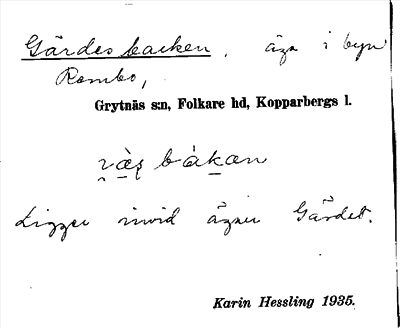 Gärdesbacken, äga i byn
Rembo,
Grytnäs s:n, Folkare hd, Kopparbergs l.
bàkan
Ligger invid ägan Gärdet.
Karin Hessling 1935.